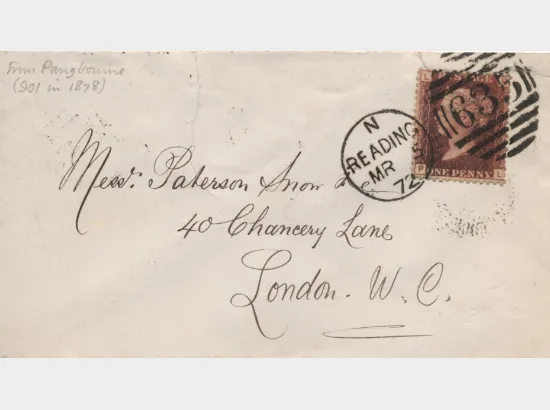 From Pangbourne
(201 in 1878)
L
635
N
READING
MR
72
ONE PENNY
P L
Messrs. Paterson Snow &
40 Chancery Lane
London. W. C.